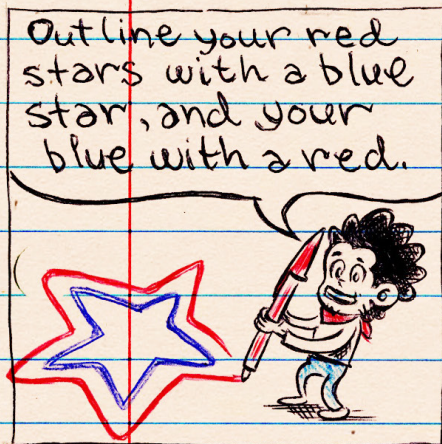 Outline your red
stars with a blue
star, and your
blue with a red.